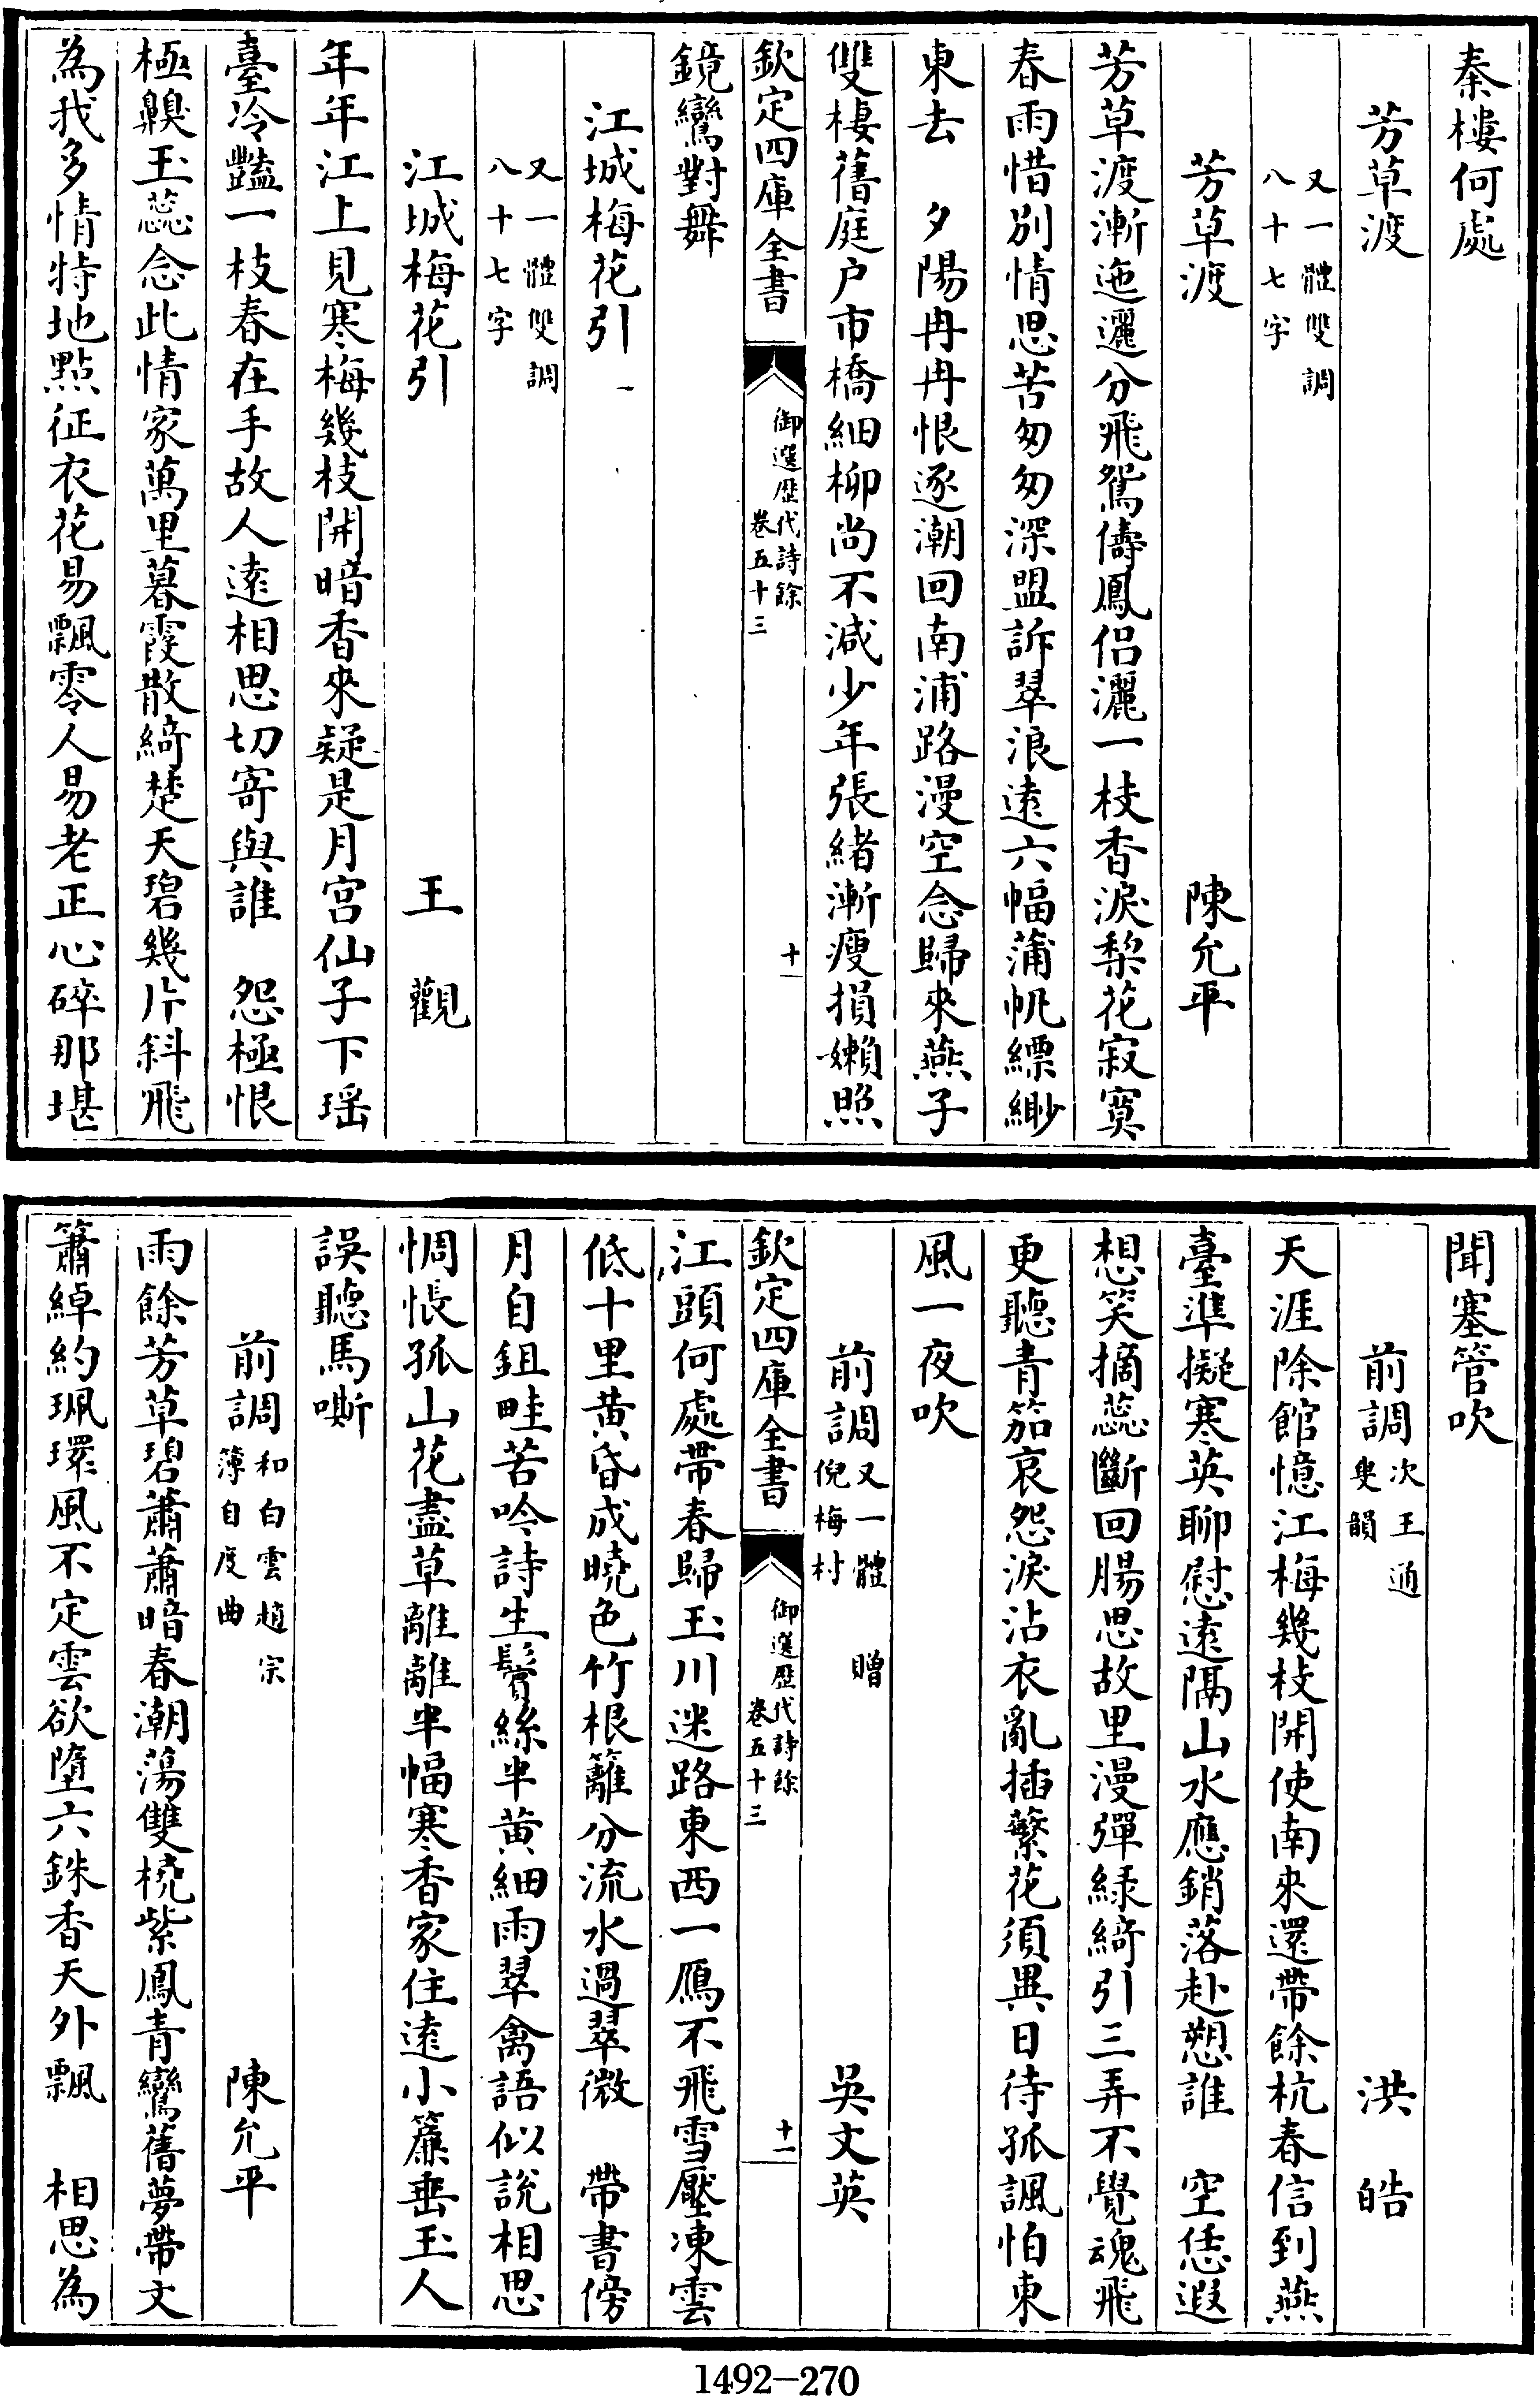 秦樓何處
芳草渡
又一體雙調
八十七字
芳草渡　陳允平
芳草渡漸迤邐分飛鴛儔鳳侶灑一枝香淚梨花寂寞
春雨惜別情思苦匆匆深盟訴翠浪遠六幅蒲帆縹緲
東去　夕陽冉冉恨逐潮回南浦路漫空念歸來燕子
雙棲舊庭户市橋細柳尚不減少年張緒漸瘦損嬾照
欽定四庫全書
御選歷代詩餘
卷五十三
十
鏡鸞對舞
江城梅花引一
又一體雙調
八十七字
江城梅花引　王觀
年年江上見寒梅幾枝開暗香來疑是月宮仙子下瑶
臺冷豔一枝春在手故人遠相思切寄與誰　怨極恨
極齅玉蕊念此情家萬里暮霞散綺楚天碧幾片斜飛
為我多情特地點征衣花易飄零人易老正心碎那堪
聞塞管吹
前調
次王道
叟韻
洪皓
天涯除館憶江梅幾枝開使南來還帶餘杭春信到燕
臺準擬寒英聊慰遠隔山水應銷落赴愬誰　空恁遐
想笑摘蕊斷回腸思故里漫彈緑綺引三弄不覺魂飛
更聽青笳哀怨淚沾衣亂插繁花須異日待孤諷怕東
風一夜吹
前調
又一體　贈
倪梅村
吳文英
欽定四庫全書
御選歷代詩餘
卷五十三
十一
江頭何處帶春歸玉川迷路東西一鴈不飛雪壓凍雲
低十里黄昏成曉色竹根籬分流水過翠微　帶書傍
月自鉏畦苦吟詩生鬢絲半黄細雨翠禽語似說相思
惆悵孤山花盡草離離半幅寒香家住遠小簾垂玉人
誤聽馬嘶
前調
和白雲趙宗
簿自度曲
陳允平
雨餘芳草碧蕭蕭暗春潮蕩雙橈紫鳳青鸞舊夢帶文
簫綽約珮環風不定雲欲墮六銖香天外飄　相思為
1492-270